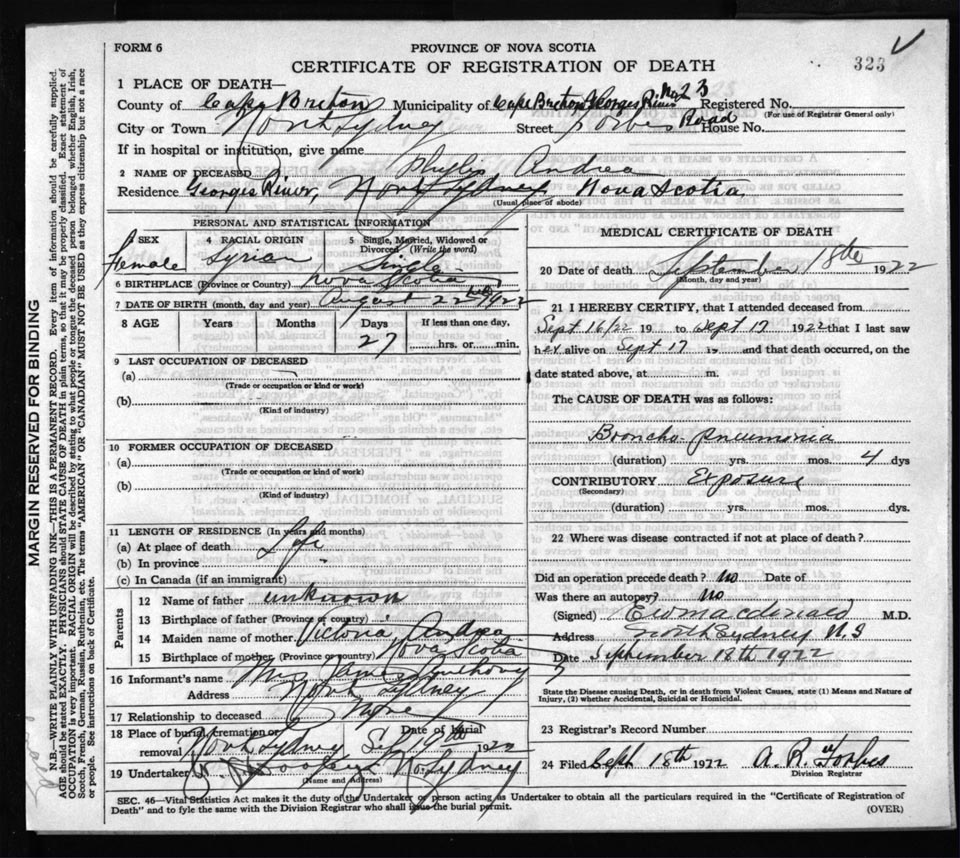 FORM 6
PROVINCE OF NOVA SCOTIA
CERTIFICATE OF REGISTRATION OF DEATH
323
1 PLACE OF DEATH—
County of Cape Breton Municipality of Cape Breton Georges River No 23 Registered No.
(For use of Registrar General only)
City or Town North Sydney Street Forbes Road House No.
If in hospital or institution, give name
2 NAME OF DECEASED Phylis Andrea
Residence Georges River, North Sydney, Nova Scotia
(Usual place of abode)
PERSONAL AND STATISTICAL INFORMATION
3 SEX
Female
4 RACIAL ORIGIN
Syrian
5 Single, Married, Widowed or Divorced (Write the word)
Single
6 BIRTHPLACE (Province or Country) Nova Scotia
7 DATE OF BIRTH (month, day and year) August 22nd 1922
8 AGE Years Months Days If less than one day,
27 hrs. or min.
9 LAST OCCUPATION OF DECEASED
(a)
(Trade or occupation or kind of work)
(b)
(Kind of industry)
10 FORMER OCCUPATION OF DECEASED
(a)
(Trade or occupation or kind of work)
(b)
(Kind of industry)
11 LENGTH OF RESIDENCE (In years and months)
(a) At place of death Life
(b) In province
(c) In Canada (if an immigrant)
Parents
12 Name of father unknown
13 Birthplace of father (Province or country)
14 Maiden name of mother Victoria Andrea
15 Birthplace of mother (Province or country) Nova Scotia
16 Informant's name Mrs Anthony
Address North Sydney
17 Relationship to deceased None
18 Place of burial, cremation or removal North Sydney Date of burial 1922
19 Undertaker N. Sydney
(Name and Address)
MEDICAL CERTIFICATE OF DEATH
20 Date of death September 18th 1922
(Month, day and year)
21 I HEREBY CERTIFY, that I attended deceased from
Sept 16/22 19 to Sept 17 1922 that I last saw
her alive on Sept 17 19 and that death occurred, on the
date stated above, at m.
The CAUSE OF DEATH was as follows:
Broncho-pneumonia
(duration) yrs. mos. 4 dys
CONTRIBUTORY Exposure
(Secondary)
(duration) yrs. mos. dys.
22 Where was disease contracted if not at place of death?
Did an operation precede death? No Date of
Was there an autopsy? No
(Signed) Macdonald M.D.
Address North Sydney N.S
Date September 18th 1922
State the Disease causing Death, or in death from Violent Causes, state (1) Means and Nature of
Injury, (2) whether Accidental, Suicidal or Homicidal.
23 Registrar's Record Number
24 Filed Sept 18th 1922 A. R. Forbes
Division Registrar
SEC. 46—Vital Statistics Act makes it the duty of the Undertaker or person acting as Undertaker to obtain all the particulars required in the "Certificate of Registration of
Death" and to fyle the same with the Division Registrar who shall issue the burial permit.
(OVER)
MARGIN RESERVED FOR BINDING
N.B.—WRITE PLAINLY WITH UNFADING INK—THIS IS A PERMANENT RECORD. Every item of information should be carefully supplied.
AGE should be stated EXACTLY. PHYSICIANS should STATE CAUSE OF DEATH in plain terms, so that it may be properly classified. Exact statement of
OCCUPATION is very important. RACIAL ORIGIN will be described by stating to what people or tongue the deceased person belonged whether English, Irish,
Scotch, French, German, Russian, Ruthenian, etc. The terms "AMERICAN" OR "CANADIAN" MUST NOT BE USED as they express citizenship but not a race
or people. See instructions on back of Certificate.